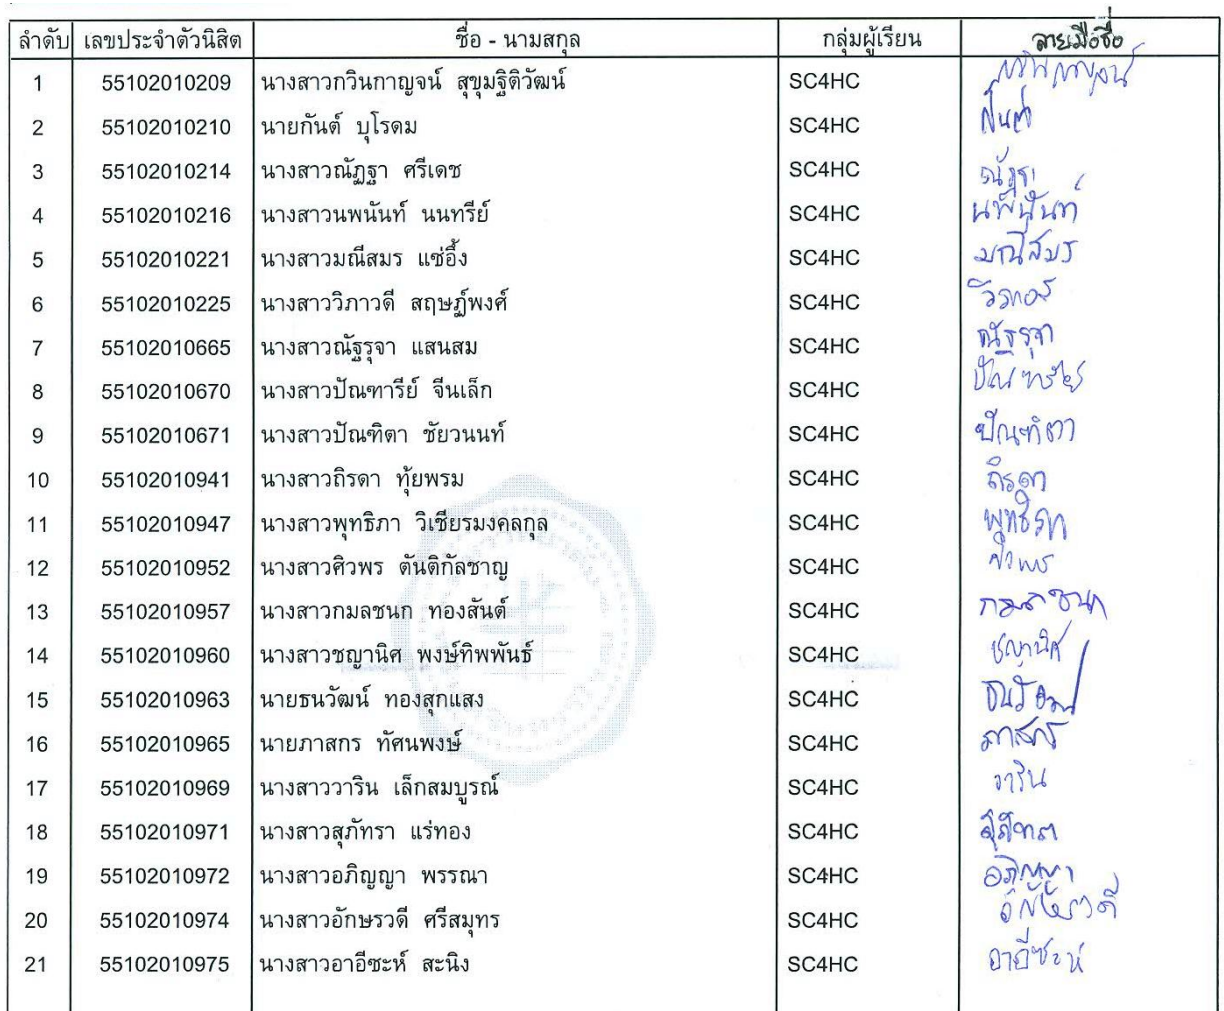 ลำดับ เลขประจำตัวนิสิต ชื่อ - นามสกุล กลุ่มผู้เรียน ลายมือชื่อ
1 55102010209 นางสาวกวินกาญจน์ สุขุมฐิติวัฒน์ SC4HC กวินกาญจน์
2 55102010210 นายกันต์ บุโรดม SC4HC กันต์
3 55102010214 นางสาวณัฏฐา ศรีเดช SC4HC ณัฏฐา
4 55102010216 นางสาวนพนันท์ นนทรีย์ SC4HC นพนันท์
5 55102010221 นางสาวมณีสมร แซ่อึ้ง SC4HC มณีสมร
6 55102010225 นางสาววิภาวดี สฤษฎ์พงศ์ SC4HC
7 55102010665 นางสาวณัฐรุจา แสนสม SC4HC ณัฐรุจา
8 55102010670 นางสาวปัณฑารีย์ จีนเล็ก SC4HC ปัณฑารีย์
9 55102010671 นางสาวปัณฑิตา ชัยวนนท์ SC4HC ปัณฑิตา
10 55102010941 นางสาวถิรดา ทุ้ยพรม SC4HC ถิรดา
11 55102010947 นางสาวพุทธิภา วิเชียรมงคลกุล SC4HC พุทธิภา
12 55102010952 นางสาวศิวพร ตันติกัลชาญ SC4HC ศิวพร
13 55102010957 นางสาวกมลชนก ทองสันต์ SC4HC กมลชนก
14 55102010960 นางสาวชญานิศ พงษ์ทิพพันธ์ SC4HC ชญานิศ
15 55102010963 นายธนวัฒน์ ทองสุกแสง SC4HC ธนวัฒน์
16 55102010965 นายภาสกร ทัศนพงษ์ SC4HC ภาสกร
17 55102010969 นางสาววาริน เล็กสมบูรณ์ SC4HC วาริน
18 55102010971 นางสาวสุภัทรา แร่ทอง SC4HC สุภัทรา
19 55102010972 นางสาวอภิญญา พรรณา SC4HC อภิญญา
20 55102010974 นางสาวอักษรวดี ศรีสมุทร SC4HC อักษรวดี
21 55102010975 นางสาวอาอีซะห์ สะนิง SC4HC อาอีซะห์